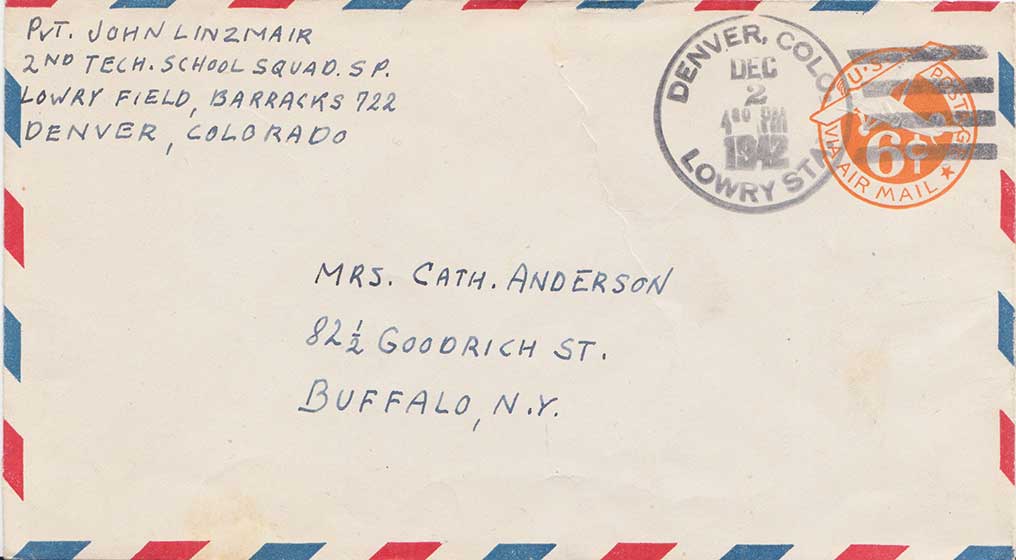 PVT. JOHN LINZMAIR
2ND TECH. SCHOOL SQUAD. SP.
LOWRY FIELD, BARRACKS 722
DENVER, COLORADO
DENVER, COLO.
DEC
2
PM
1942
LOWRY STA
U.S. POSTAGE
6¢
VIA AIR MAIL
MRS. CATH. ANDERSON
82 1/2 GOODRICH ST.
BUFFALO, N.Y.